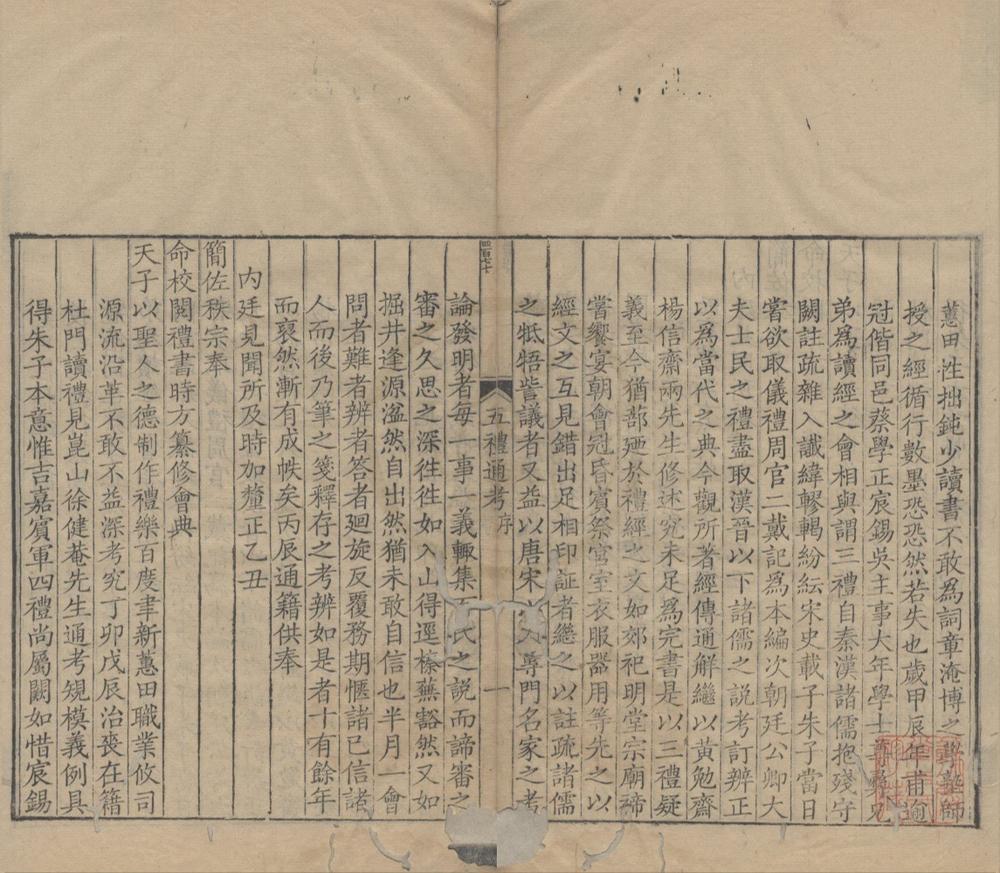 蕙田性拙鈍少讀書不敢為詞章淹博之學塾師
授之經循行數墨恐恐然若失也歲甲辰年甫逾
冠偕同邑蔡學正宸錫吳主事大年學士尊彝兄
弟為讀經之會相與謂三禮自秦漢諸儒抱殘守
闕註疏雜入讖緯轇轕紛紜宋史載子朱子當日
嘗欲取儀禮周官二戴記為本編次朝廷公卿大
夫士民之禮盡取漢晉以下諸儒之說考訂辨正
以為當代之典今觀所著經傳通解繼以黃勉齋
楊信齋兩先生修述究未足為完書是以三禮疑
義至今猶蔀廼於禮經之文如郊祀明堂宗廟禘
嘗饗宴朝會冠昏賓祭宮室衣服器用等先之以
經文之互見錯出足相印証者繼之以註疏諸儒
之牴牾訾議者又益以唐宋以專門名家之考
五禮通考 序 一
論發明者每一事一義輒集氏之說而諦審之
審之久思之深徃徃如入山得逕榛蕪豁然又如
掘井逢源溢然自出然猶未敢自信也半月一會
問者難者辨者答者廻旋反覆務期愜諸己信諸
人而後乃筆之箋釋存之考辨如是者十有餘年
而裒然漸有成帙矣丙辰通籍供奉
內廷見聞所及時加釐正乙丑
簡佐秩宗奉
命校閱禮書時方纂修會典
天子以聖人之德制作禮樂百度聿新蕙田職業攸司
源流沿革不敢不益深考究丁卯戊辰治喪在籍
杜門讀禮見崑山徐健菴先生通考䂓模義例具
得朱子本意惟吉嘉賓軍四禮尚屬闕如惜宸錫